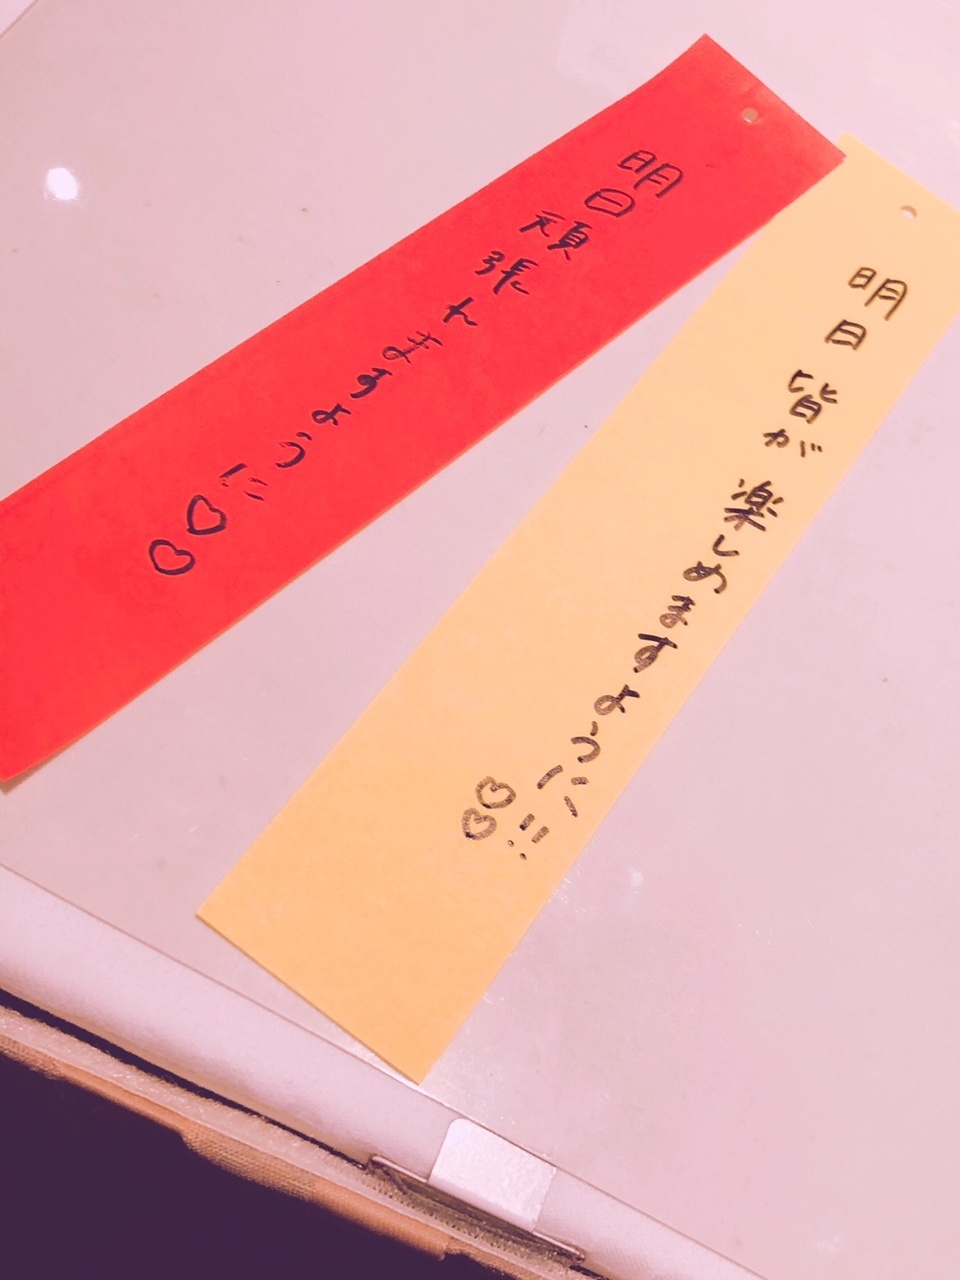 明日頑張れますように♡♡
明日皆が楽しめますように!!♡♡